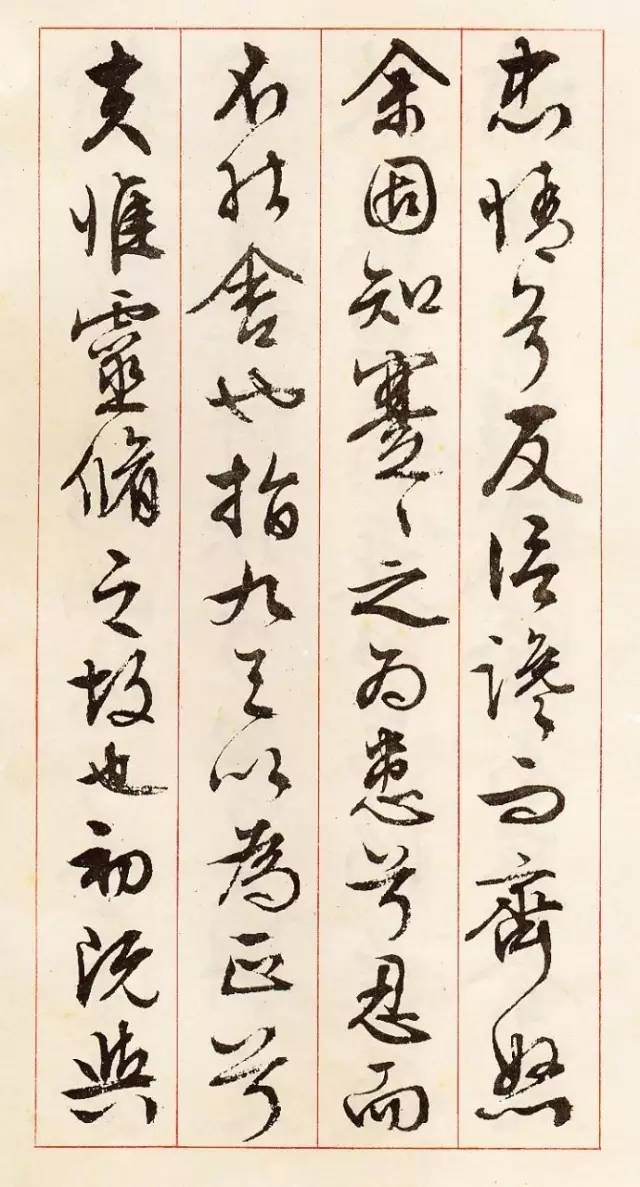 忠情兮反信讒而齊怒
余固知蹇〻之為患兮忍而
不能舍也指九天以為正兮
夫惟靈脩之故也初既與